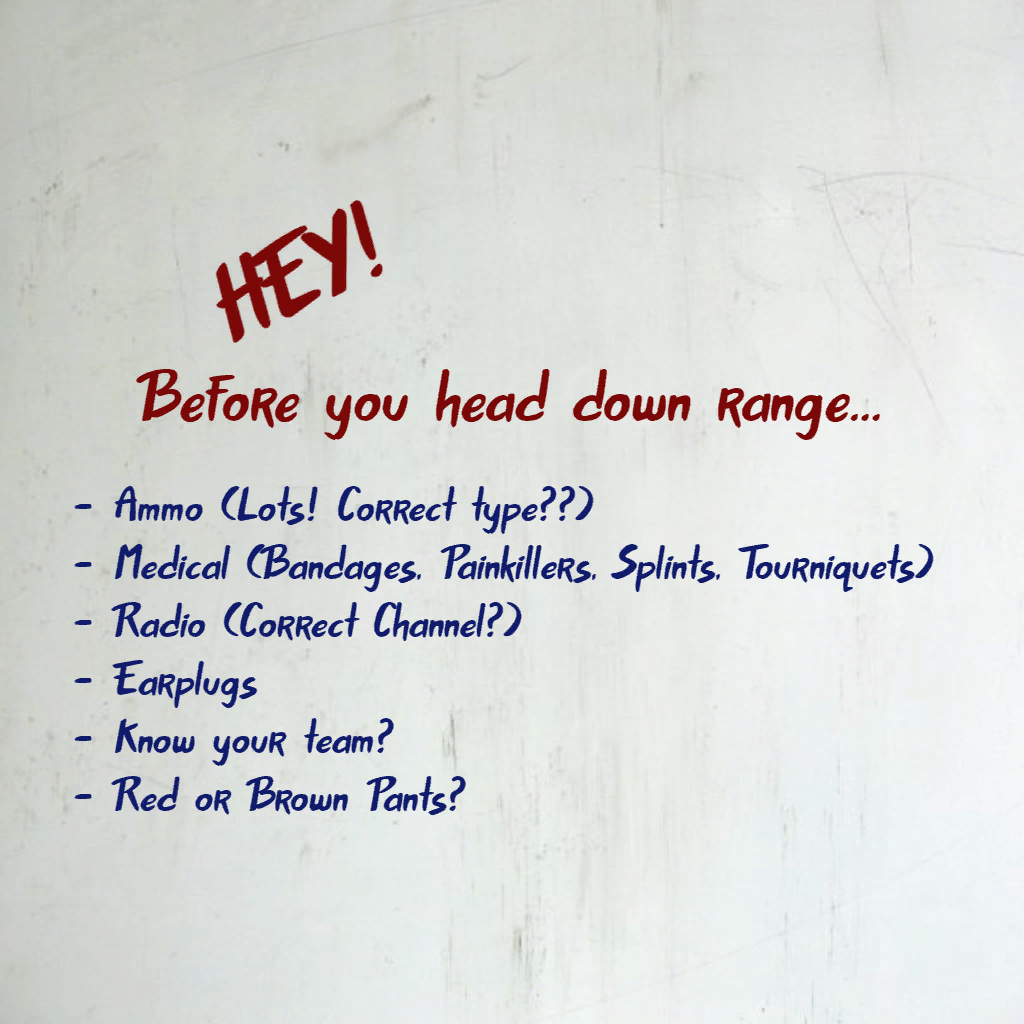 HEY!
Before you head down range...
- Ammo (Lots! Correct type??)
- Medical (Bandages, Painkillers, Splints, Tourniquets)
- Radio (Correct Channel?)
- Earplugs
- Know your team?
- Red or Brown Pants?